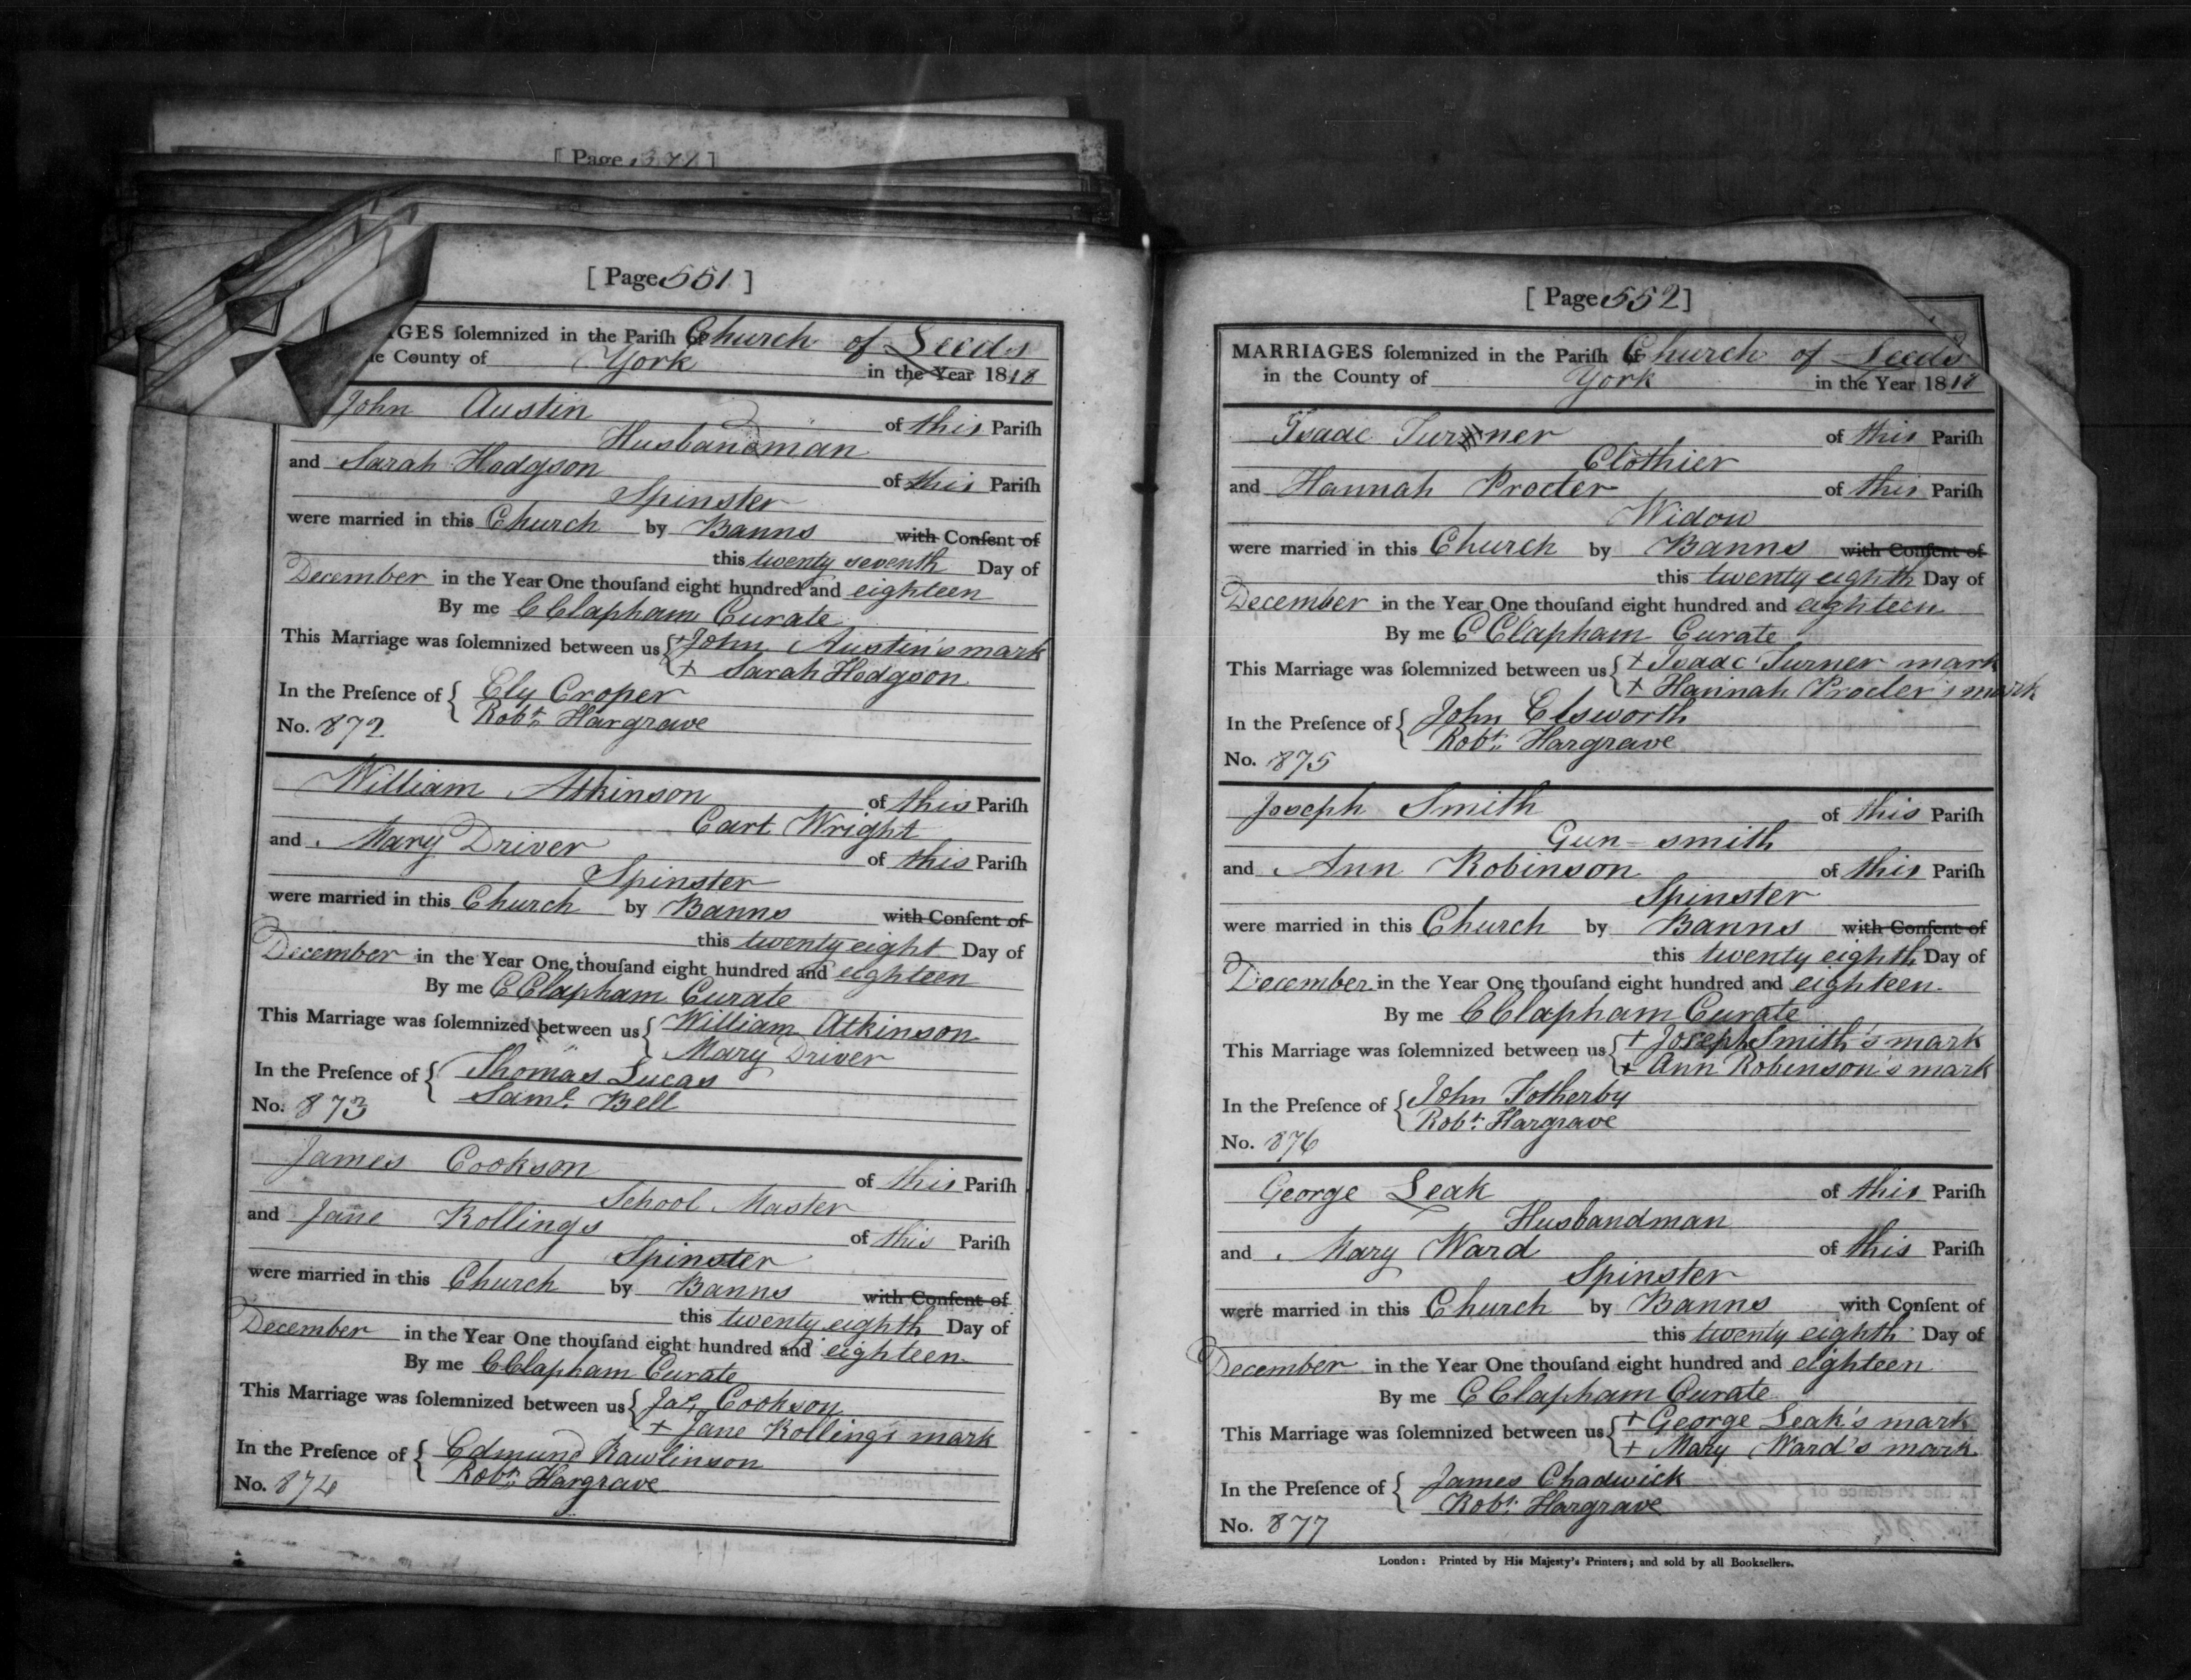 [ Page 551 ]
GES ſolemnized in the Pariſh of Church of Leeds
County of York in the Year 1818
John Austin of this Pariſh
Husbandman
and Sarah Hodgson of this Pariſh
Spinster
were married in this Church by Banns with Conſent of
this twenty seventh Day of
December in the Year One thouſand eight hundred and eighteen
By me C Clapham Curate
This Marriage was ſolemnized between us { + John Austin's mark
+ Sarah Hodgson
In the Preſence of { Ely Croper
Robt. Hargrave
No. 872
William Atkinson of this Pariſh
Cart Wright
and Mary Driver of this Pariſh
Spinster
were married in this Church by Banns with Conſent of
this twenty eight Day of
December in the Year One thouſand eight hundred and eighteen
By me C Clapham Curate
This Marriage was ſolemnized between us { William Atkinson
Mary Driver
In the Preſence of { Thomas Lucas
Saml. Bell
No. 873
James Cookson of this Pariſh
School Master
and Jane Rollings of this Pariſh
Spinster
were married in this Church by Banns with Conſent of
this twenty eighth Day of
December in the Year One thouſand eight hundred and eighteen
By me C Clapham Curate
This Marriage was ſolemnized between us { Jas. Cookson
+ Jane Rollings mark
In the Preſence of { Edmund Rawlinson
Robt. Hargrave
No. 874
[ Page 552 ]
MARRIAGES ſolemnized in the Pariſh of Church of Leeds
in the County of York in the Year 1818
Isaac Turner of this Pariſh
Clothier
and Hannah Procter of this Pariſh
Widow
were married in this Church by Banns with Conſent of
this twenty eighth Day of
December in the Year One thouſand eight hundred and eighteen
By me C Clapham Curate
This Marriage was ſolemnized between us { + Isaac Turner mark
+ Hannah Procter's mark
In the Preſence of { John Elsworth
Robt. Hargrave
No. 875
Joseph Smith of this Pariſh
Gun-smith
and Ann Robinson of this Pariſh
Spinster
were married in this Church by Banns with Conſent of
this twenty eighth Day of
December in the Year One thouſand eight hundred and eighteen
By me C Clapham Curate
This Marriage was ſolemnized between us { + Joseph Smith's mark
+ Ann Robinson's mark
In the Preſence of { John Fotherby
Robt. Hargrave
No. 876
George Leak of this Pariſh
Husbandman
and Mary Ward of this Pariſh
Spinster
were married in this Church by Banns with Conſent of
this twenty eighth Day of
December in the Year One thouſand eight hundred and eighteen
By me C Clapham Curate
This Marriage was ſolemnized between us { + George Leak's mark
+ Mary Ward's mark
In the Preſence of { James Chadwick
Robt. Hargrave
No. 877
London: Printed by His Majesty's Printers; and sold by all Booksellers.